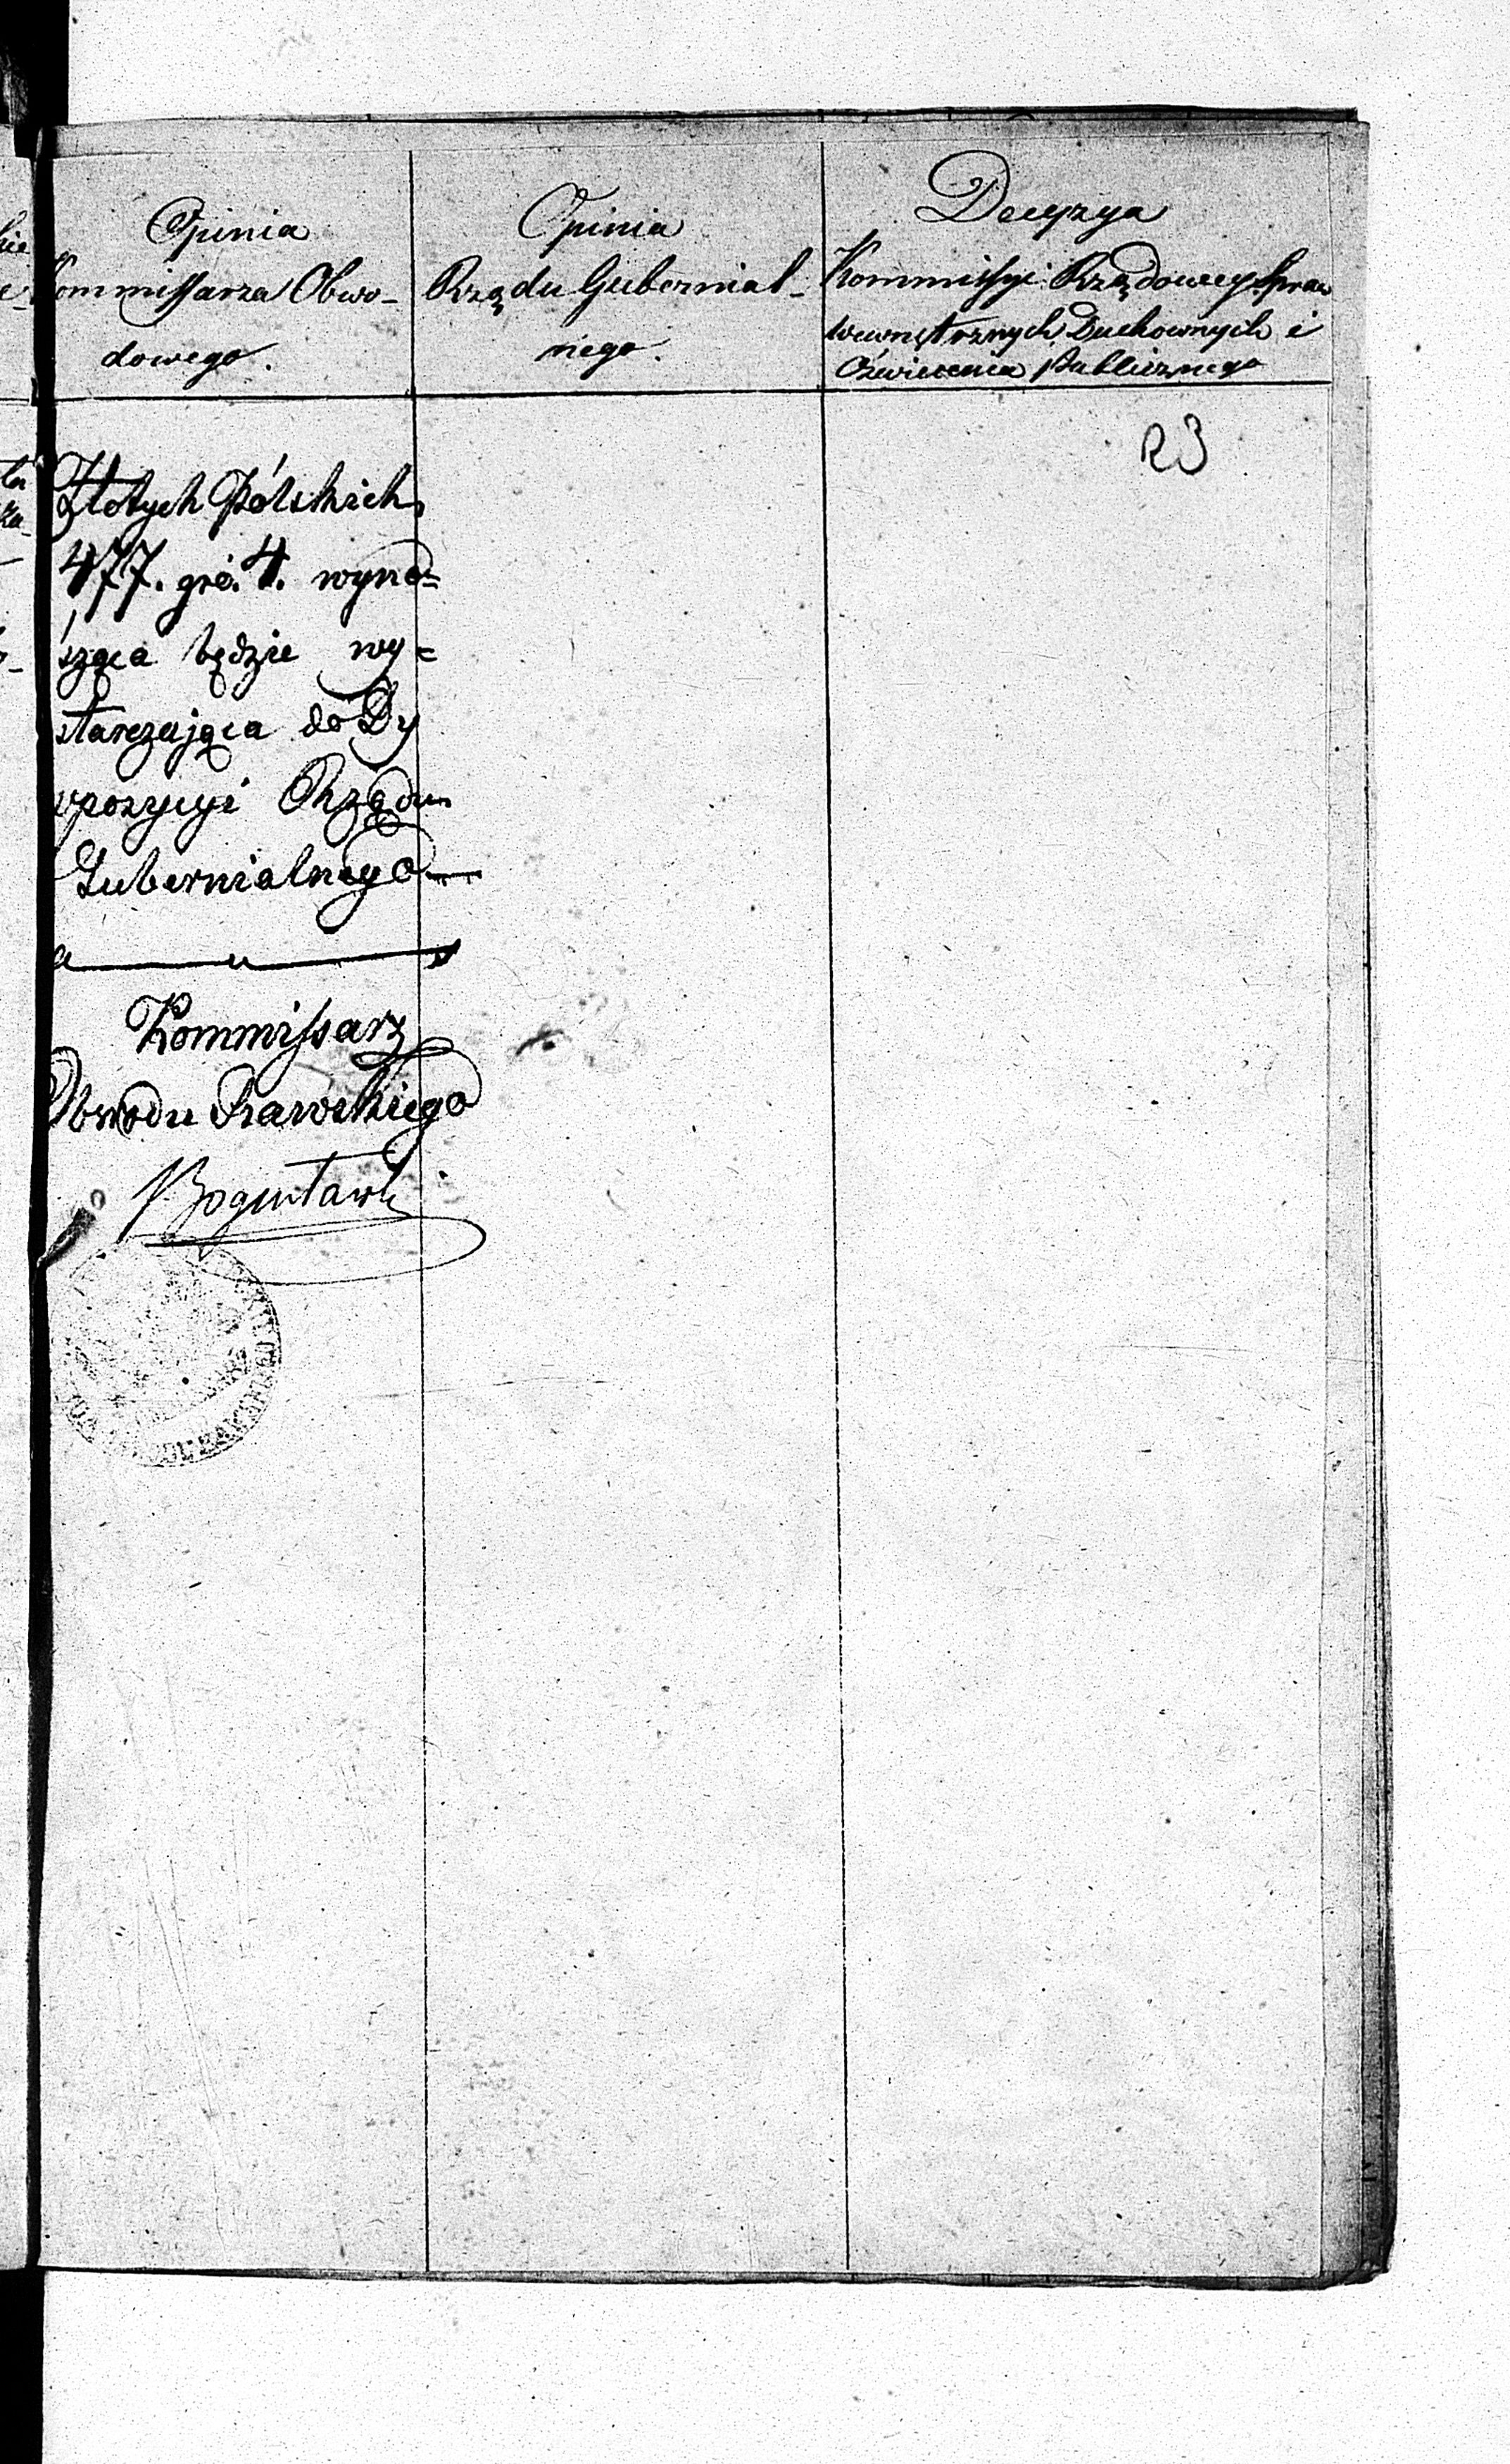 Opinia
Kommissarza Obwo-
dowego.
Opinia
Rządu Gubernial-
nego.
Decyzya
Kommissyi Rządowey Spraw
Wewnętrznych Duchownych i
Oświecenia Publicznego
23
Złotych Pólskich
477. gro. 4. wyno=
sząca będzie wy=
starczająca do Dy
spozycyi Rządu
Gubernialnego
Kommissarz
Obwodu Rawskiego